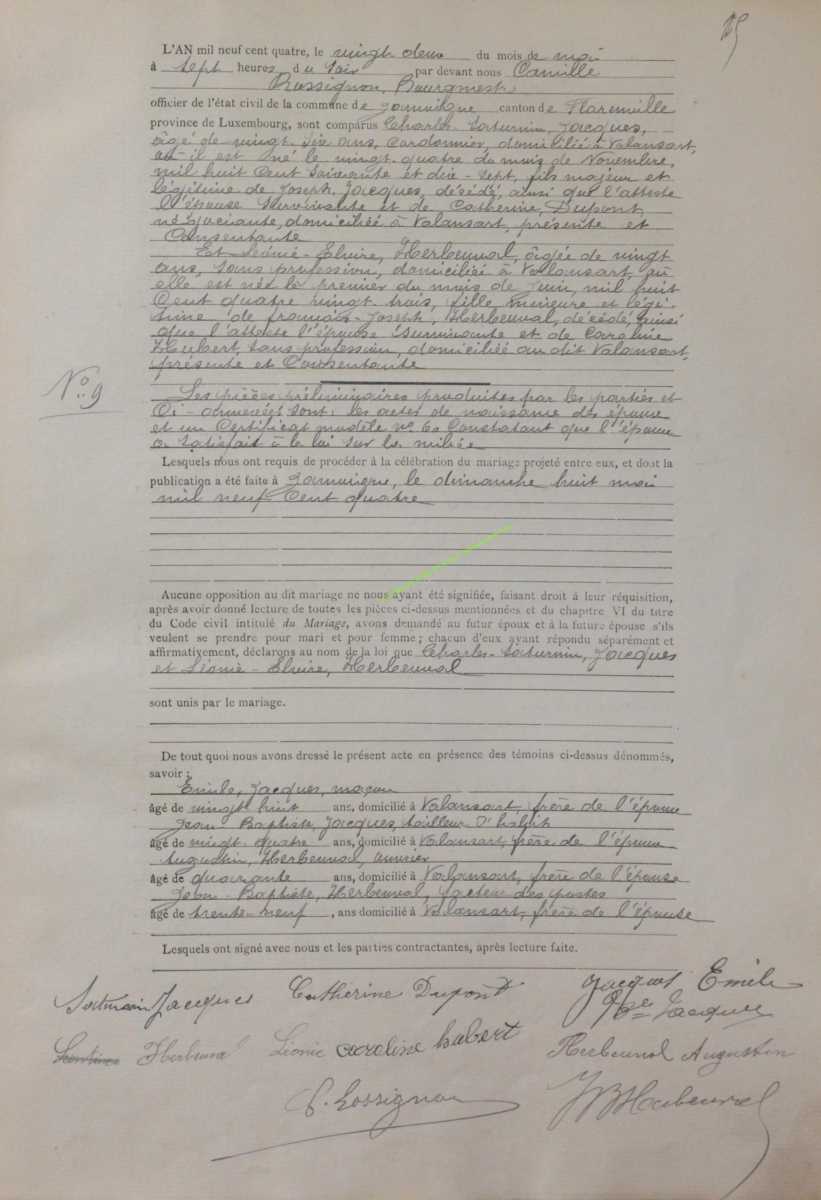 L'AN mil neuf cent quatre, le vingt deux du mois de mai
à sept heures du soir par devant nous Camille
Rossignon, Bourgmestre
officier de l'état civil de la commune de Jamoigne canton de Florenville
province de Luxembourg, sont comparus Charles-Saturnin, Jacques,
âgé de vingt six ans, Cordonnier, domicilié à Valansart,
où il est né le vingt-quatre du mois de Novembre,
mil huit Cent soixante et dix-sept, fils majeur et
légitime de Joseph, Jacques, décédé, ainsi que l'atteste
l'épouse survivante et de Catherine, Dupont,
négociante, domiciliée à Valansart, présente et
Consentante
Et Léonie-Elvire, Herbeuval, âgée de vingt
ans, sans profession, domiciliée à Valansart, où
elle est née le premier du mois de Juin, mil huit
Cent quatre vingt-trois, fille mineure et légi-
time de françois-Joseph, Herbeuval, décédé, ainsi
que l'atteste l'épouse survivante et de Caroline
Hubert, sans profession, domiciliée au dit Valansart,
présente et Consentante
N° 9
Les pièces préliminaires produites par les parties et
Ci-annexées sont: les actes de naissance des époux
et un Certificat modèle n° 60 Constatant que l'époux
a satisfait à la loi sur la milice
Lesquels nous ont requis de procéder à la célébration du mariage projeté entre eux, et dont la
publication a été faite à Jamoigne, le dimanche huit mai
mil neuf Cent quatre
Aucune opposition au dit mariage ne nous ayant été signifiée, faisant droit à leur réquisition,
après avoir donné lecture de toutes les pièces ci-dessus mentionnées et du chapitre VI du titre
du Code civil intitulé du Mariage, avons demandé au futur époux et à la future épouse s'ils
veulent se prendre pour mari et pour femme; chacun d'eux ayant répondu séparément et
affirmativement, déclarons au nom de la loi que Charles-Saturnin, Jacques
et Léonie-Elvire, Herbeuval
sont unis par le mariage.
De tout quoi nous avons dressé le présent acte en présence des témoins ci-dessus dénommés,
savoir :
Emile, Jacques, maçon
âgé de vingt huit ans, domicilié à Valansart, frère de l'époux
Jean-Baptiste, Jacques, tailleur d'habits
âgé de vingt-quatre ans, domicilié à Valansart, frère de l'époux
Augustin, Herbeuval, ouvrier
âgé de quarante ans, domicilié à Valansart, frère de l'épouse
Jean-Baptiste, Herbeuval, facteur des postes
âgé de trente-neuf, ans domicilié à Valansart, frère de l'épouse
Lesquels ont signé avec nous et les parties contractantes, après lecture faite.
Saturnin Jacques Catherine Dupont Jacques Emile
Jacques
Herbeuval Léonie Caroline hubert Herbeuval Augustin
C. Rossignon JB Herbeuval